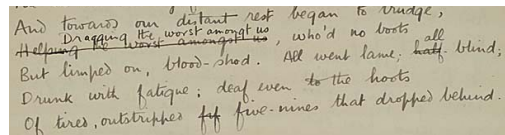 And towards our distant rest began to trudge,
Dragging the worst amongst us
Helping the worst amongst us, who'd no boots
But limped on, blood-shod. All went lame; half all blind;
Drunk with fatigue; deaf even to the hoots
Of tired, outstripped fif five-nines that dropped behind.